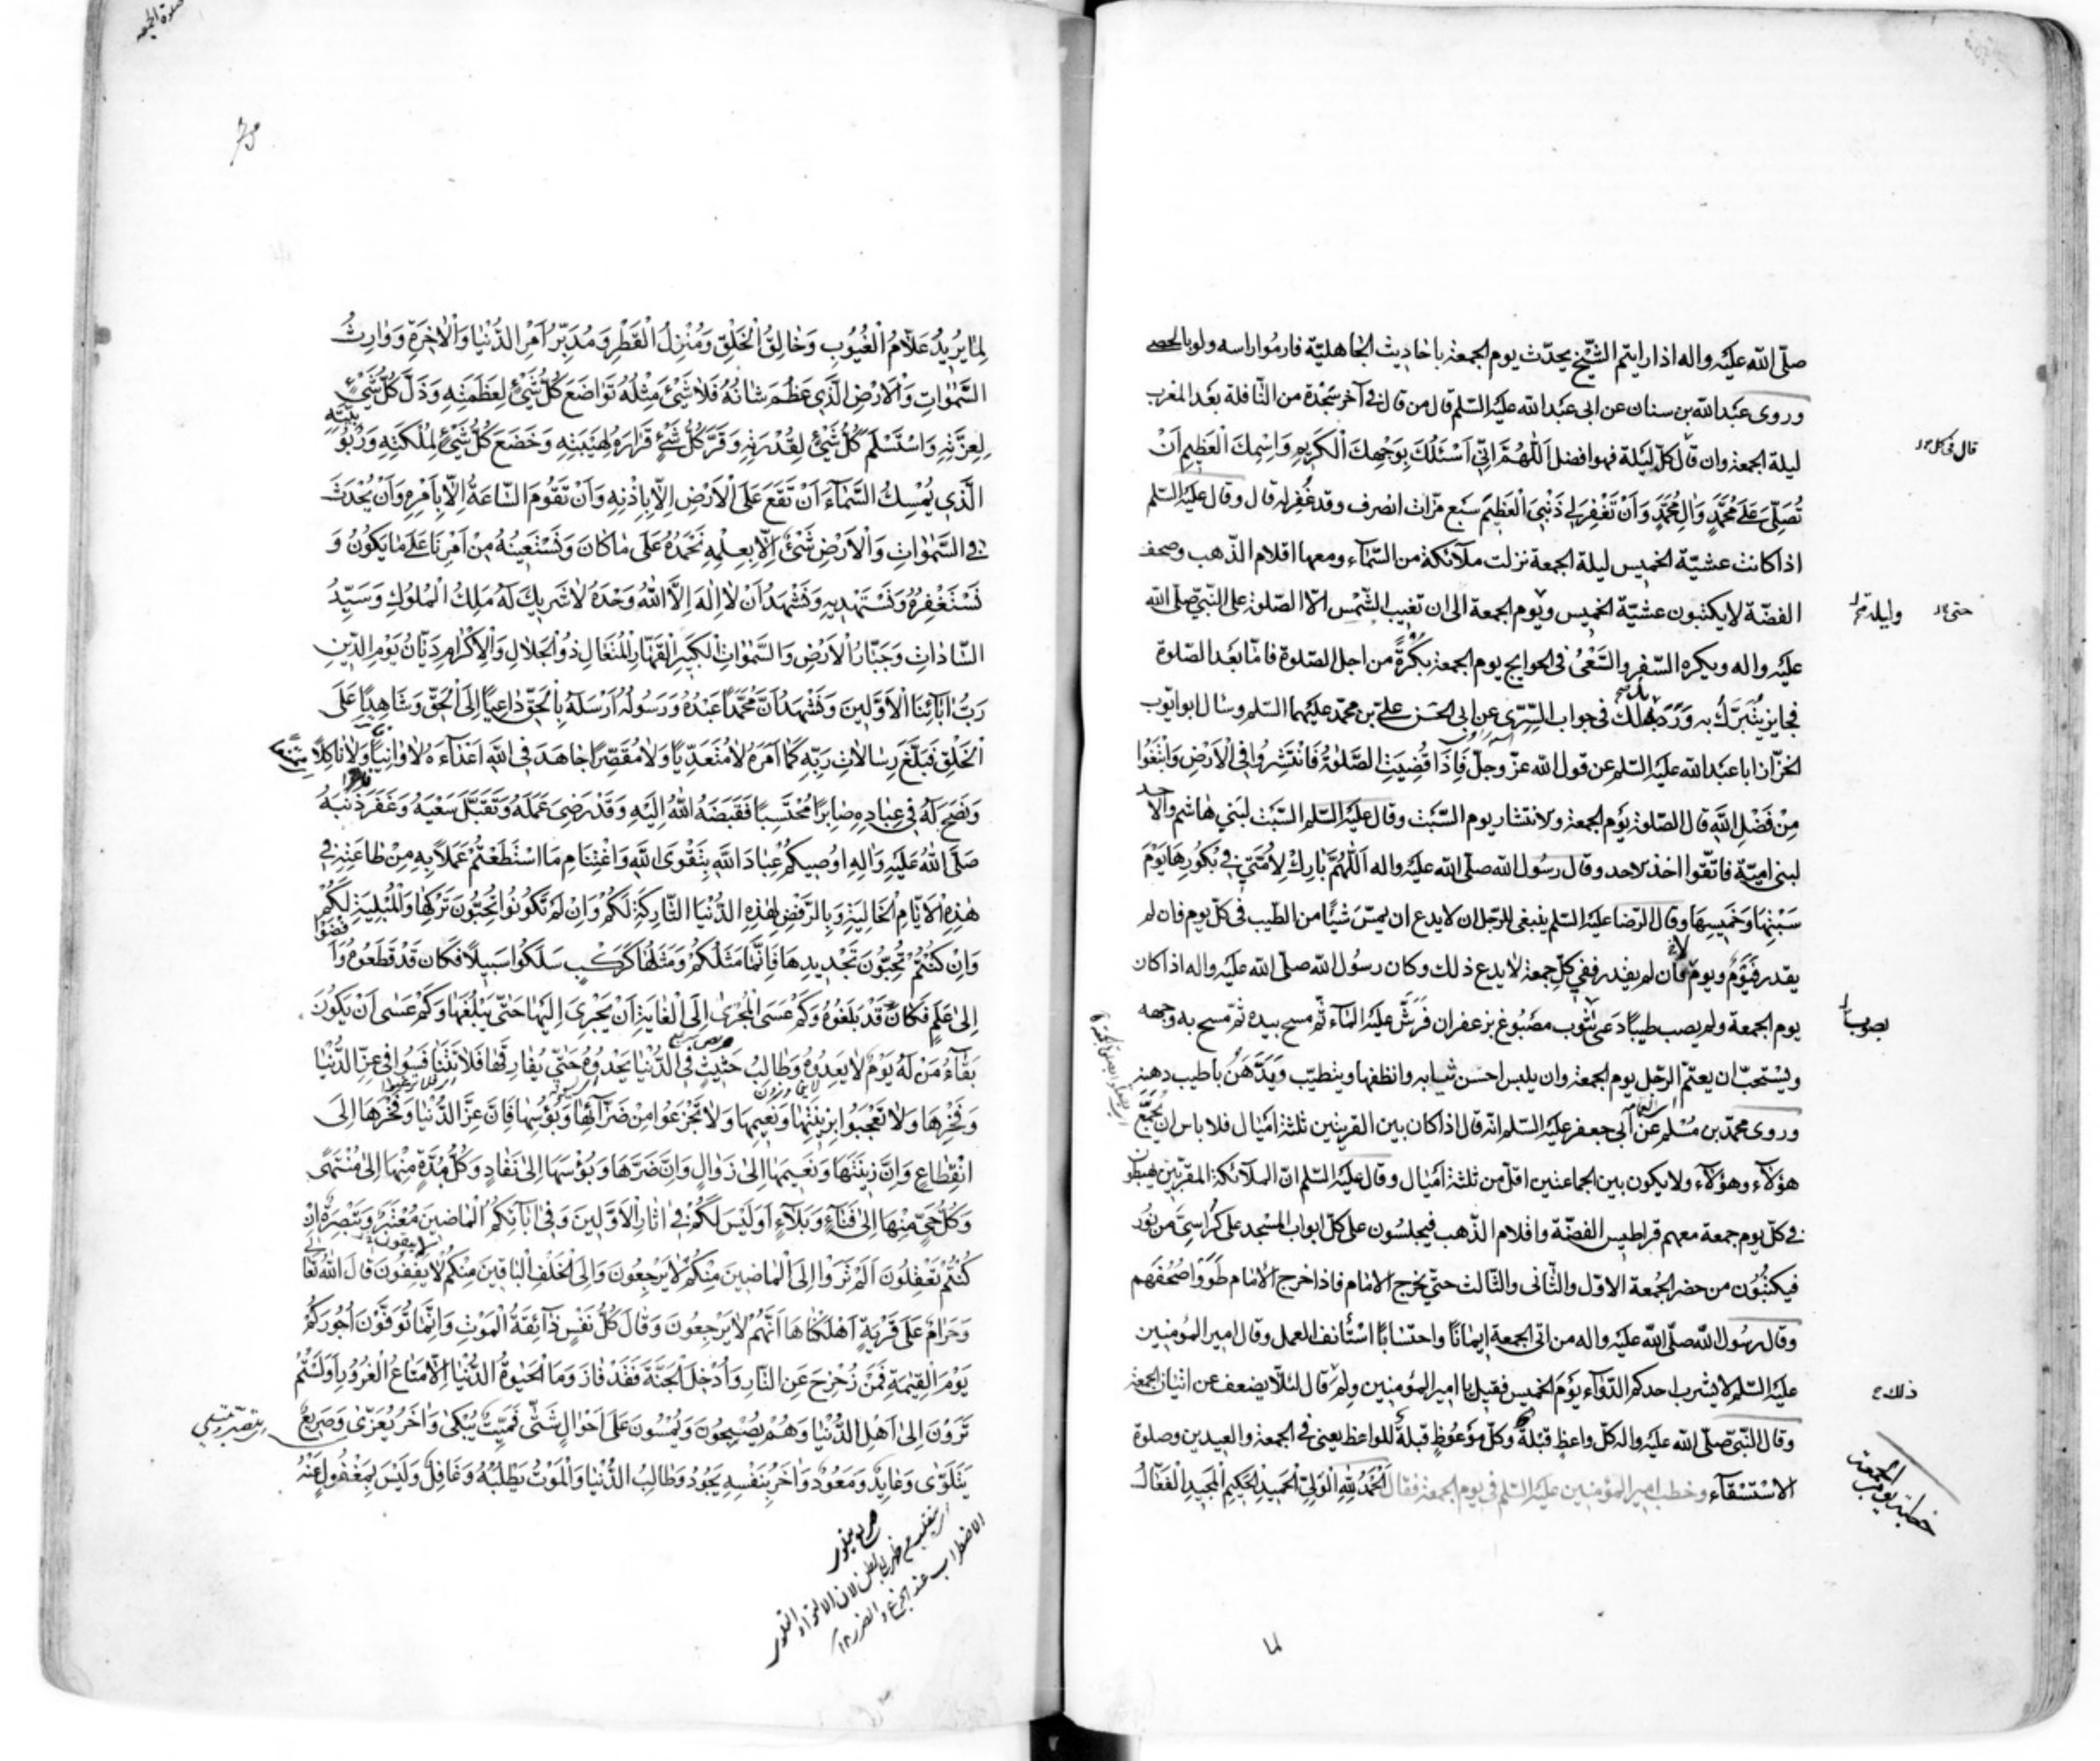 صلّى الله عليه واله اذا رايتم الشّيخ يحدّث يوم الجمعة باحاديث الجاهليّة فارموا راسه ولو بالحصى
وروى عبد الله بن سنان عن ابى عبد الله عليه السّلم قال من قال فى آخر سجدة من النّافلة بعد المغرب
ليلة الجمعة وان قال كلّ ليلة فهو افضل اَللّٰهُمَّ اِنّى اَسْئَلُكَ بِوَجْهِكَ الْكَرِيمِ وَاسْمِكَ الْعَظِيمِ اَنْ
تُصَلِّىَ عَلىٰ مُحَمَّدٍ وَالِ مُحَمَّدٍ وَاَنْ تَغْفِرَ لِى ذَنْبِىَ الْعَظِيمَ سبع مرّات انصرف وقد غُفِر له قال وقال عليه السّلم
اذا كانت عشيّة الخميس ليلة الجمعة نزلت ملآئكة من السّمآء ومعها اقلام الذّهب وصحف
الفضّة لا يكتبون عشيّة الخميس ويوم الجمعة الى ان تغيب الشّمس الّا الصّلوة على النّبىّ صلّى الله
عليه واله ويكره السّفر والسّعىُ فى الحوايج يوم الجمعة بُكْرَةً من اجل الصّلوة فامّا بعد الصّلوة
فجايز يُتَبَرَّكُ به وَرَدَ ذلك فى جواب السّرّى عن ابى الحسن علىّ بن محمّد عليهما السّلم وسال ابو ايّوب
الخزّاز ابا عبد الله عليه السّلم عن قول الله عزّ وجلّ فَاِذَا قُضِيَتِ الصَّلٰوةُ فَانْتَشِرُوا فِى الْاَرْضِ وَابْتَغُوا
مِنْ فَضْلِ اللهِ قال الصّلوة يَوم الجمعة والانتشار يوم السّبت وقال عليه السّلم السّبت لبنى هاشم والاحد
لبنى اميّة فاتّقوا اخذ الاحد وقال رسول الله صلّى الله عليه واله اَللّٰهُمَّ بَارِكْ لِاُمَّتى فى بُكُورِهَا يَوْمَ
سَبْتِهَا وَخَمِيسِهَا وقال الرّضا عليه السّلم ينبغى للرّجل ان لا يدع ان يمسّ شيئا من الطّيب فى كلّ يوم فان لم
يقدر فَيَوْمٌ ويومٌ لا فان لم يقدر ففى كلّ جمعة لا يدع ذلك وكان رسول الله صلّى الله عليه واله اذا كان
يوم الجمعة ولم يصب طيبًا دَعى بثوب مصبُوغ بزعفران فَرَشَّ عليه المآء ثمّ مسح بيده ثمّ مسح به وجهه
ويُستحبّ ان يعتمّ الرّجل يوم الجمعة وان يلبس احسن ثيابه وانظفها ويتطيّب ويَدَّهن باطيب دهنه
وروى محمّد بن مُسْلم عن ابى جعفر عليه السّلم انّه قال اذا كان بين القريتين ثلثة اميال فلا باس ان يُجَمِّعَ
هؤلآء وهؤلآء ولا يكون بين الجماعتين اقلّ من ثلثة اميال وقال عليه السّلم انّ الملآئكة المقرّبين يهبطون
فى كلّ يوم جمعة معهم قراطيس الفضّة واقلام الذّهب فيجلسون على كلّ ابواب المسجد على كراسىّ من نور
فيكتُبُون من حضر الجُمعة الاوّل والثّانى والثّالث حتّى يخرج الامام فاذا خرج الامام طَوَوْا صُحُفَهم
وقال رسول الله صلّى الله عليه واله من اتى الجمعة ايمانًا واحتسابًا استأنف العمل وقال امير المؤمنين
عليه السّلم لا يشرب احدكم الدّوآء يَومَ الخميس فقيل يا امير المؤمنين ولِمَ قال لئلّا يضعف عن اتيان الجمعة
وقال النّبىّ صلّى الله عليه واله كلّ واعظٍ قبلةٌ وكلّ مَوعُوظٍ قبلةٌ للواعظ يعنى فى الجمعة والعيدين وصلوة
الاسْتسْقآء وخطب امير المؤمنين عليه السّلم فى يوم الجمعة فقال اَلْحَمْدُ للهِ الْوَلِىِّ الْحَمِيدِ الْحَكِيمِ الْمَجِيدِ الْفَعّالِ
قال فى كل
حتى
وليلة
ذلك
خطبة يوم الجمعة
لما
صلوة الجمعة
لِمَا يُرِيدُ عَلّامُ الْغُيُوبِ وَخَالِقُ الْخَلْقِ وَمُنْزِلُ الْقَطْرِ وَمُدَبِّرُ اَمْرِ الدُّنْيَا وَالْاٰخِرَةِ وَوَارِثُ
السَّمٰوَاتِ وَالْاَرْضِ الَّذِى عَظُمَ شَانُهُ فَلَا شَىْءَ مِثْلُهُ تَوَاضَعَ كُلُّ شَىْءٍ لِعَظَمَتِهِ وَذَلَّ كُلُّ شَىْءٍ
لِعِزَّتِهِ وَاسْتَسْلَمَ كُلُّ شَىْءٍ لِقُدْرَتِهِ وَقَرَّ كُلُّ شَىْءٍ قَرَارَهُ لِهَيْبَتِهِ وَخَضَعَ كُلُّ شَىْءٍ لِمَلَكَتِهِ وَرُبُوبِيَّتِهِ
الَّذِى يُمْسِكُ السَّمَآءَ اَنْ تَقَعَ عَلَى الْاَرْضِ اِلّا بِاِذْنِهِ وَاَنْ تَقُومَ السَّاعَةُ اِلّا بِاَمْرِهِ وَاَنْ يُحْدَثَ
فِى السَّمٰوَاتِ وَالْاَرْضِ شَىْءٌ اِلّا بِعِلْمِهِ نَحْمَدُهُ عَلَى مَا كَانَ وَنَسْتَعِينُهُ مِنْ اَمْرِنَا عَلَى مَا يَكُونُ وَ
نَسْتَغْفِرُهُ وَنَسْتَهْدِيهِ وَنَشْهَدُ اَنْ لَا اِلٰهَ اِلَّا اللهُ وَحْدَهُ لَا شَرِيكَ لَهُ مَلِكُ الْمُلُوكِ وَسَيِّدُ
السَّادَاتِ وَجَبَّارُ الْاَرْضِ وَالسَّمٰوَاتِ الْكَبِيرِ الْقَهَّارِ الْمُتَعَالِ ذُو الْجَلَالِ وَالْاِكْرَامِ دَيَّانُ يَوْمِ الدِّينِ
رَبُّ اٰبَآئِنَا الْاَوَّلِينَ وَنَشْهَدُ اَنَّ مُحَمَّدًا عَبْدُهُ وَرَسُولُهُ اَرْسَلَهُ بِالْحَقِّ دَاعِيًا اِلَى الْحَقِّ وَشَاهِدًا عَلَى
الْخَلْقِ فَبَلَّغَ رِسَالَاتِ رَبِّهِ كَمَا اَمَرَهُ لَا مُتَعَدِّيًا وَلَا مُقَصِّرًا جَاهَدَ فِى اللهِ اَعْدَآءَهُ لَا وَانِيًا وَلَا نَاكِلًا
وَنَصَحَ لَهُ فِى عِبَادِهِ صَابِرًا مُحْتَسِبًا فَقَبَضَهُ اللهُ اِلَيْهِ وَقَدْ رَضِىَ عَمَلَهُ وَتَقَبَّلَ سَعْيَهُ وَغَفَرَ ذَنْبَهُ
صَلَّى اللهُ عَلَيْهِ وَاٰلِهِ اُوصِيكُمْ عِبَادَ اللهِ بِتَقْوَى اللهِ وَاغْتِنَامِ مَا اسْتَطَعْتُمْ عَمَلًا بِهِ مِنْ طَاعَتِهِ فِى
هٰذِهِ الْاَيَّامِ الْخَالِيَةِ وَبِالرَّفْضِ لِهٰذِهِ الدُّنْيَا التَّارِكَةِ لَكُمْ وَاِنْ لَمْ تَكُونُوا تُحِبُّونَ تَرْكَهَا وَالْمُبْلِيَةِ لَكُمْ
وَاِنْ كُنْتُمْ تُحِبُّونَ تَجْدِيدَهَا فَاِنَّمَا مَثَلُكُمْ وَمَثَلُهَا كَرَكْبٍ سَلَكُوا سَبِيلًا فَكَانَ قَدْ قَطَعُوهُ وَاَفْضَوْا
اِلىٰ عَلَمٍ فَكَانَ قَدْ بَلَغُوهُ وَكَمْ عَسَى الْمُجْرىٰ اِلَى الْغَايَةِ اَنْ يَجْرِىَ اِلَيْهَا حَتّى يَبْلُغَهَا وَكَمْ عَسٰى اَنْ يَكُونَ
بَقَآءُ مَنْ لَهُ يَوْمٌ لَا يَعْدُوهُ وَطَالِبٌ حَثِيثٌ فِى الدُّنْيَا يَحْدُوهُ حَتّى يُفَارِقَهَا فَلَا تَتَنَافَسُوا فِى عِزِّ الدُّنْيَا
وَفَخْرِهَا وَلَا تَعْجَبُوا بِزِينَتِهَا وَنَعِيمِهَا وَلَا تَجْزَعُوا مِنْ ضَرَّآئِهَا وَبُؤْسِهَا فَاِنَّ عِزَّ الدُّنْيَا وَفَخْرَهَا اِلَى
انْقِطَاعٍ وَاِنَّ زِينَتَهَا وَنَعِيمَهَا اِلىٰ زَوَالٍ وَاِنَّ ضَرَّهَا وَبُؤْسَهَا اِلىٰ نَفَادٍ وَكُلُّ مُدَّةٍ مِنْهَا اِلىٰ مُنْتَهىً
وَكُلُّ حَىٍّ مِنْهَا اِلىٰ فَنَآءٍ وَبَلَآءٍ اَوَلَيْسَ لَكُمْ فِى اٰثَارِ الْاَوَّلِينَ وَفِى اٰبَآئِكُمُ الْمَاضِينَ مُعْتَبَرٌ وَتَبْصِرَةٌ اِنْ
كُنْتُمْ تَعْقِلُونَ اَلَمْ تَرَوْا اِلَى الْمَاضِينَ مِنْكُمْ لَا يَرْجِعُونَ وَاِلَى الْخَلَفِ الْبَاقِينَ مِنْكُمْ لَا يَقِفُونَ قَالَ اللهُ تَعَالىٰ
وَحَرَامٌ عَلىٰ قَرْيَةٍ اَهْلَكْنَاهَا اَنَّهُمْ لَا يَرْجِعُونَ وَقَالَ كُلُّ نَفْسٍ ذَآئِقَةُ الْمَوْتِ وَاِنَّمَا تُوَفَّوْنَ اُجُورَكُمْ
يَوْمَ الْقِيٰمَةِ فَمَنْ زُحْزِحَ عَنِ النَّارِ وَاُدْخِلَ الْجَنَّةَ فَقَدْ فَازَ وَمَا الْحَيٰوةُ الدُّنْيَا اِلَّا مَتَاعُ الْغُرُورِ اَوَلَسْتُمْ
تَرَوْنَ اِلىٰ اَهْلِ الدُّنْيَا وَهُمْ يُصْبِحُونَ وَيُمْسُونَ عَلىٰ اَحْوَالٍ شَتّى فَمَيِّتٌ يُبْكىٰ وَاٰخَرُ يُعَزّىٰ وَصَرِيعٌ
يَتَلَوّىٰ وَعَايِدٌ وَمَعُودٌ وَاٰخَرُ بِنَفْسِهِ يَجُودُ وَطَالِبُ الدُّنْيَا وَالْمَوْتُ يَطْلُبُهُ وَغَافِلٌ وَلَيْسَ بِمَغْفُولٍ عَنْهُ
الاضطراب عند الجوع والضرر